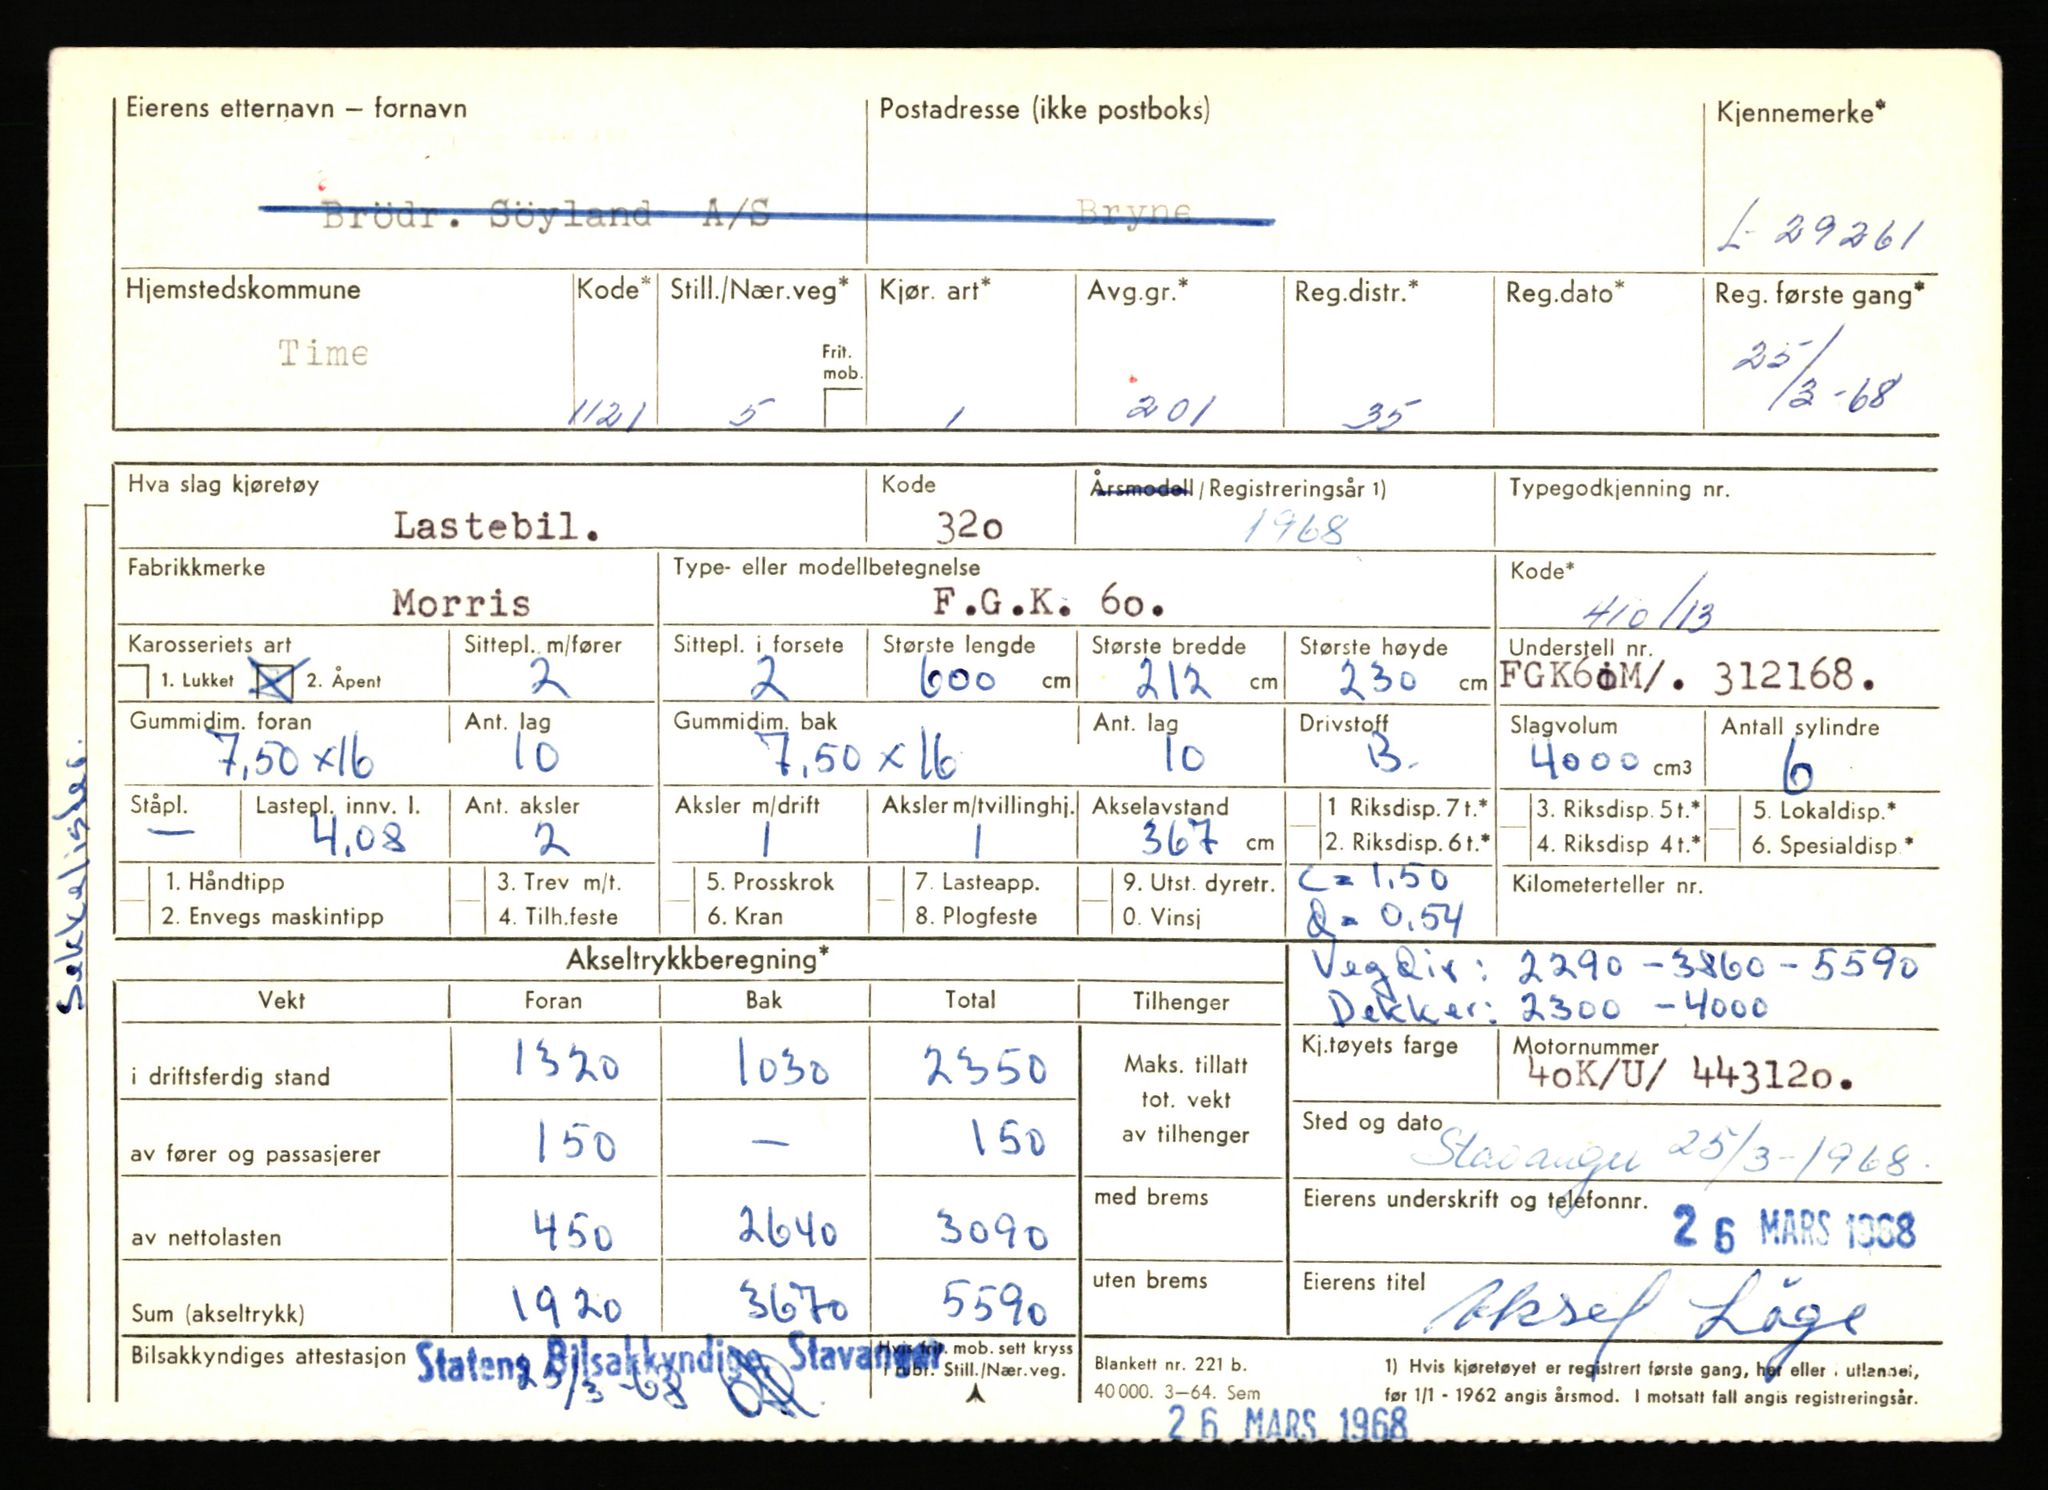 Eierens etternavn — fornavn Postadresse (ikke postboks) Kjennemerke*
Brödr. Söyland A/S Bryne L- 29261
Hjemstedskommune Kode* Still./Nær.veg* Kjør. art* Avg.gr.* Reg.distr.* Reg.dato* Reg. første gang*
Time 1121 5 Frit. mob. 1 201 35 25/3-68
Hva slag kjøretøy Kode Årsmodell / Registreringsår 1) Typegodkjenning nr.
Lastebil. 320 1968
Fabrikkmerke Type- eller modellbetegnelse Kode*
Morris F.G.K. 60. 410/13
Karosseriets art Sittepl. m/fører Sittepl. i forsete Største lengde Største bredde Største høyde Understell nr.
1. Lukket 2. Åpent 2 2 600 cm 212 cm 230 cm FGK60M/. 312168.
Gummidim. foran Ant. lag Gummidim. bak Ant. lag Drivstoff Slagvolum Antall sylindre
7,50 x 16 10 7,50 x 16 10 B. 4000 cm3 6
Ståpl. Lastepl. innv. l. Ant. aksler Aksler m/drift Aksler m/tvillinghj. Akselavstand 1 Riksdisp. 7 t.* 3. Riksdisp. 5 t.* 5. Lokaldisp.*
— 4,08 2 1 1 367 cm 2. Riksdisp. 6 t.* 4. Riksdisp 4 t.* 6. Spesialdisp.*
1. Håndtipp 3. Trev m/t. 5. Prosskrok 7. Lasteapp. 9. Utst. dyretr. C = 1,50 Kilometerteller nr.
2. Envegs maskintipp 4. Tilh.feste 6. Kran 8. Plogfeste 0. Vinsj Q = 0,54
Akseltrykkberegning* Vegdir: 2290 - 3860 - 5590
Vekt Foran Bak Total Tilhenger Dekker: 2300 - 4000
i driftsferdig stand 1320 1030 2350 Maks. tillatt tot. vekt av tilhenger Kj.tøyets farge Motornummer
40K/U/ 443120.
av fører og passasjerer 150 — 150 Sted og dato
Stavanger 25/3-1968.
av nettolasten 450 2640 3090 med brems Eierens underskrift og telefonnr.
26 MARS 1968
Sum (akseltrykk) 1920 3670 5590 uten brems Eierens titel
Aksel Låge
Bilsakkyndiges attestasjon Statens Bilsakkyndige Stavanger Hvis frit. mob. sett kryss i rubr. Still./Nær.veg.
25/3-68
Blankett nr. 221 b.
40 000. 3—64. Sem
1) Hvis kjøretøyet er registrert første gang, her eller i utlandet,
før 1/1 - 1962 angis årsmod. I motsatt fall angis registreringsår.
26 MARS 1968
Sekkelister.